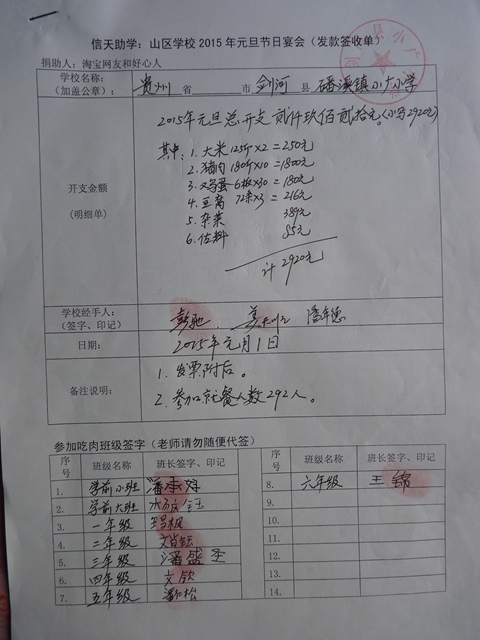 信天助学：山区学校 2015 年元旦节日宴会（发款签收单）
捐助人：淘宝网友和好心人
学校名称：
（加盖公章）：
贵州 省 市 剑河 县 磻溪镇小广小学
开支金额
(明细单)
2015年元旦总开支贰仟玖佰贰拾元。(小写2920元)
其中：1. 大米 125斤×2 = 250元
2. 猪肉 180斤×10 = 1800元
3. 鸡蛋 6板×30 = 180元
4. 豆腐 72条×3 = 216元
5. 杂菜 389元
6. 佐料 85元
计 2920元
学校经手人：
(签字、印记)
彭驰
潘年德
日期：
2015年元月1日
备注说明：
1. 发票附后。
2. 参加就餐人数292人。
参加吃肉班级签字（老师请勿随便代签）
序号 班级名称 班长签字、印记 序号 班级名称 班长签字、印记
1. 学前小班 8. 六年级 王锦
2. 学前大班 9.
3. 一年级 10.
4. 二年级 11.
5. 三年级 潘盛 12.
6. 四年级 文钦 13.
7. 五年级 14.